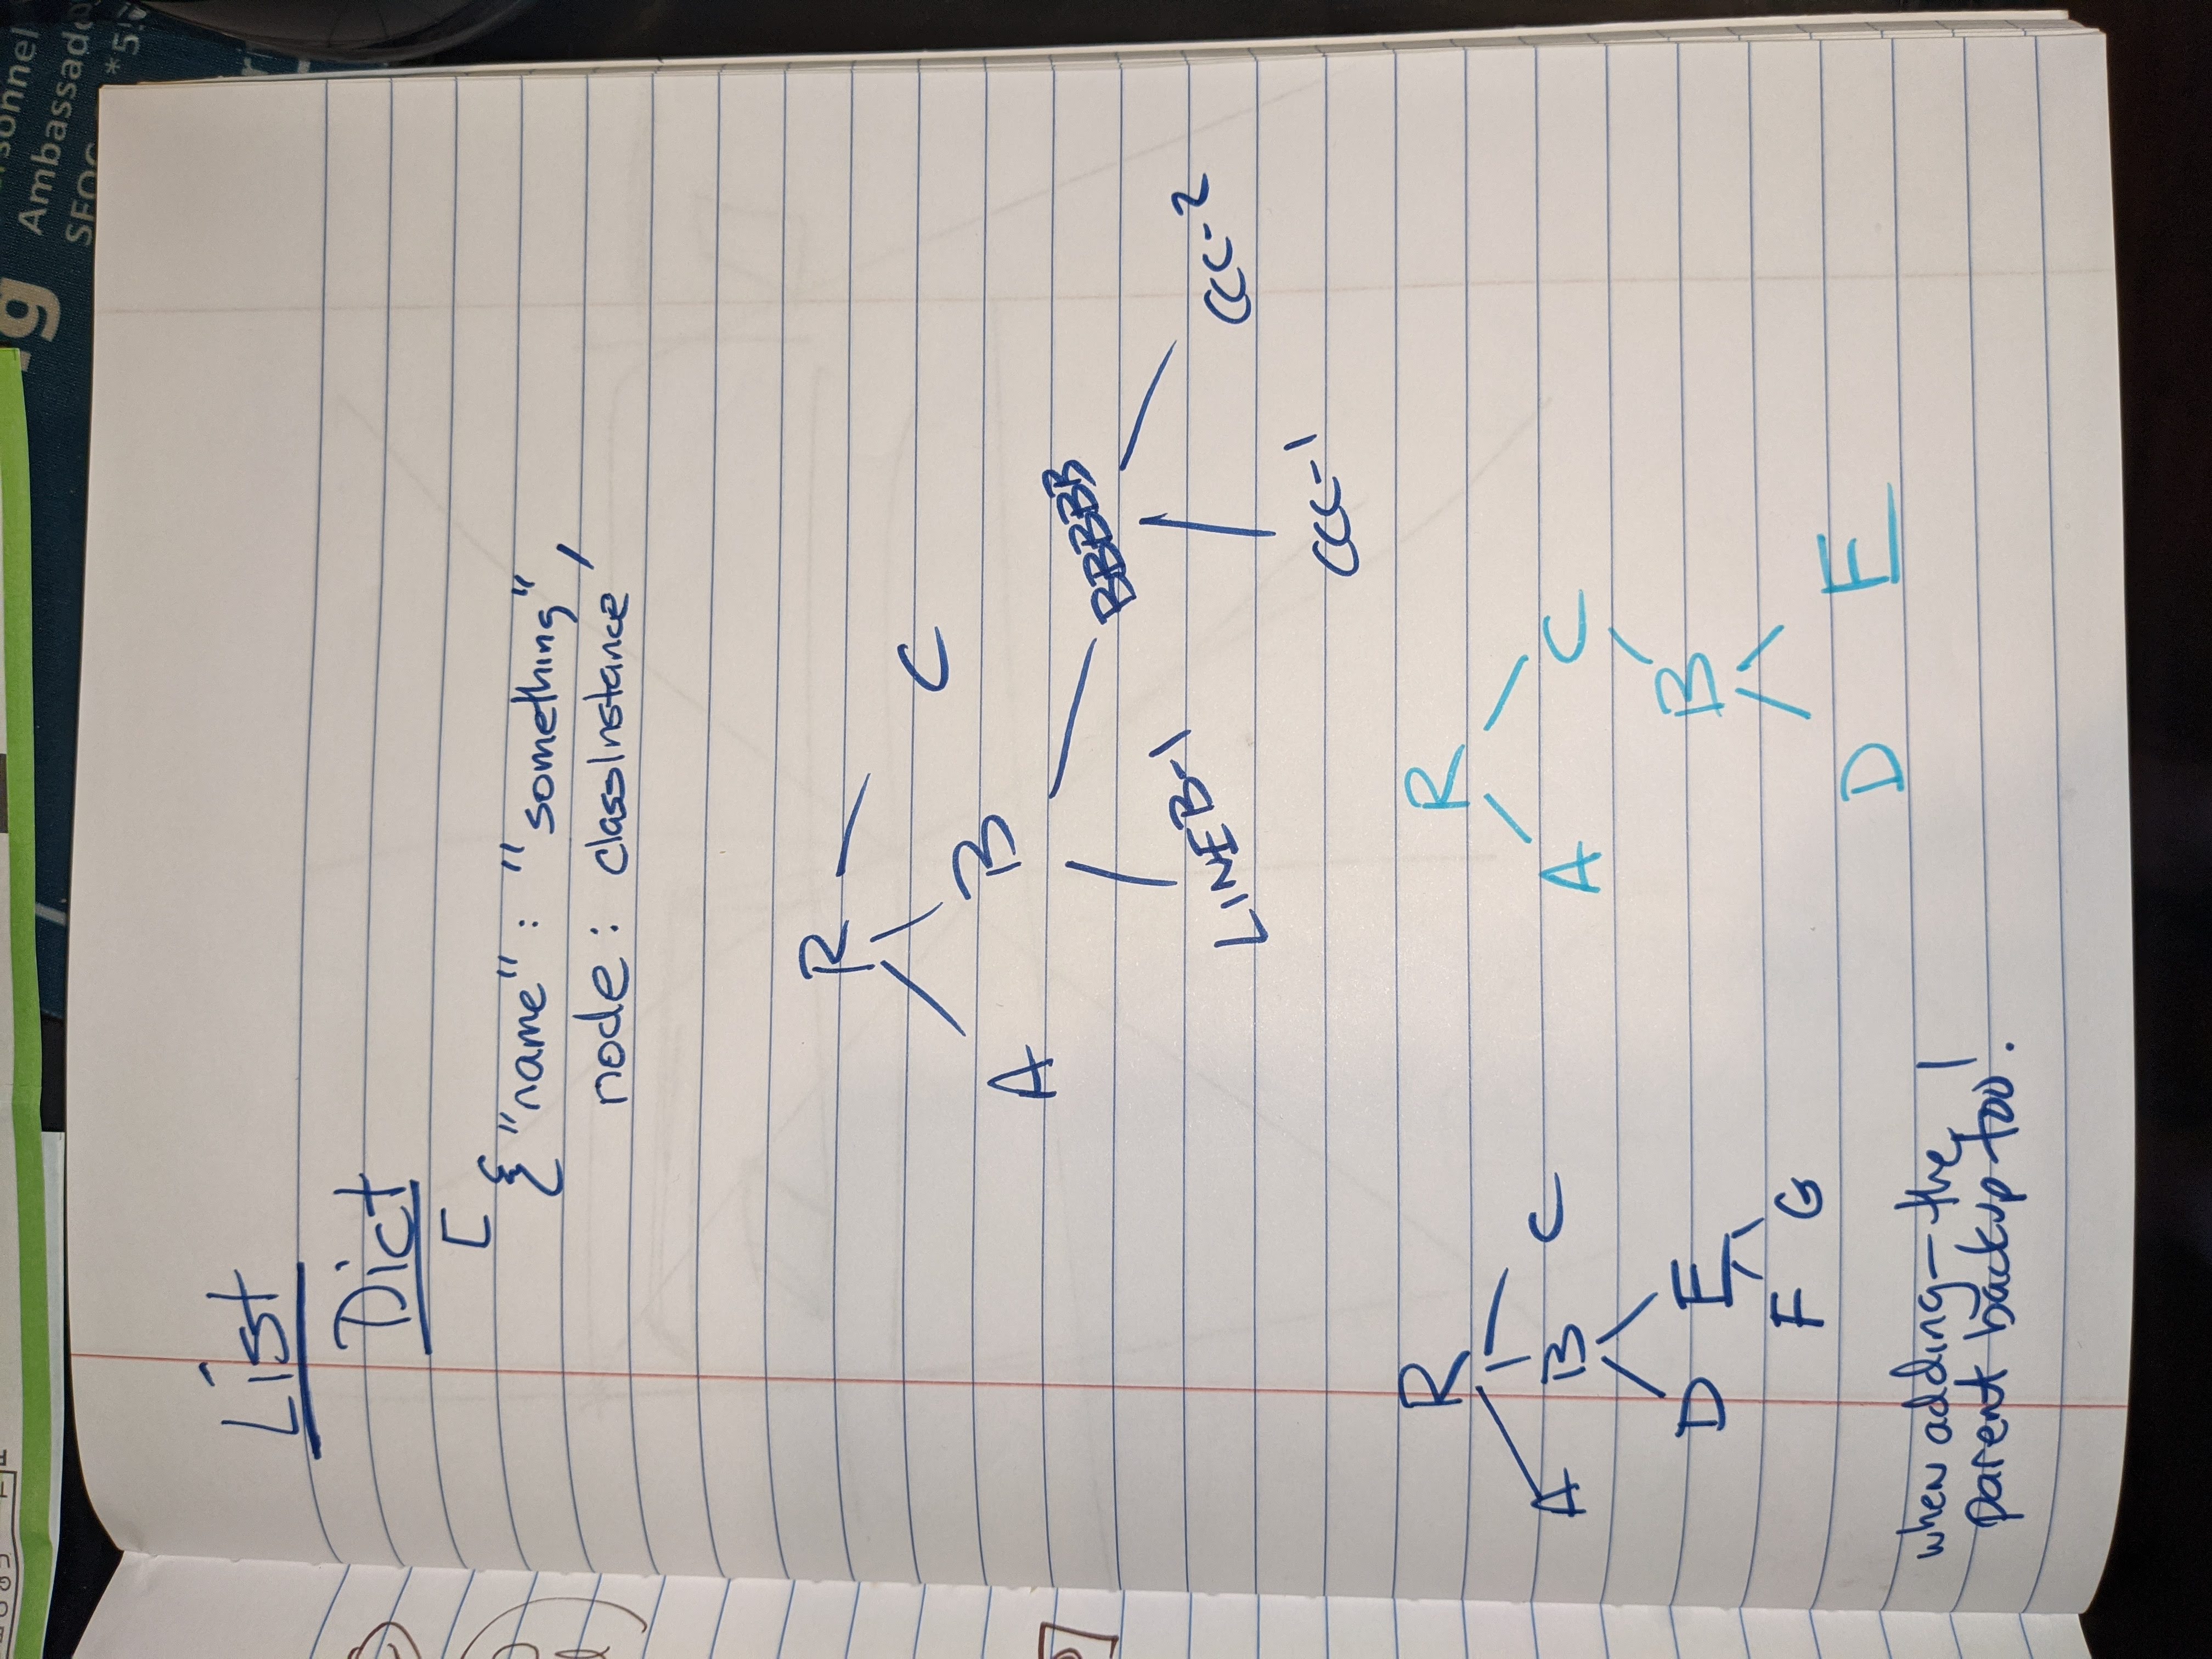 sonnel
Ambassad
SFO
*5!
List
Dict
[
{ "name" : "something",
node : classInstance
R
C
B
A
BBBBB
LINEB-1
CCC-2
CCC-1
R
A B C
D E
F G
R
A C
B
D E
when adding - the
parent backup too!